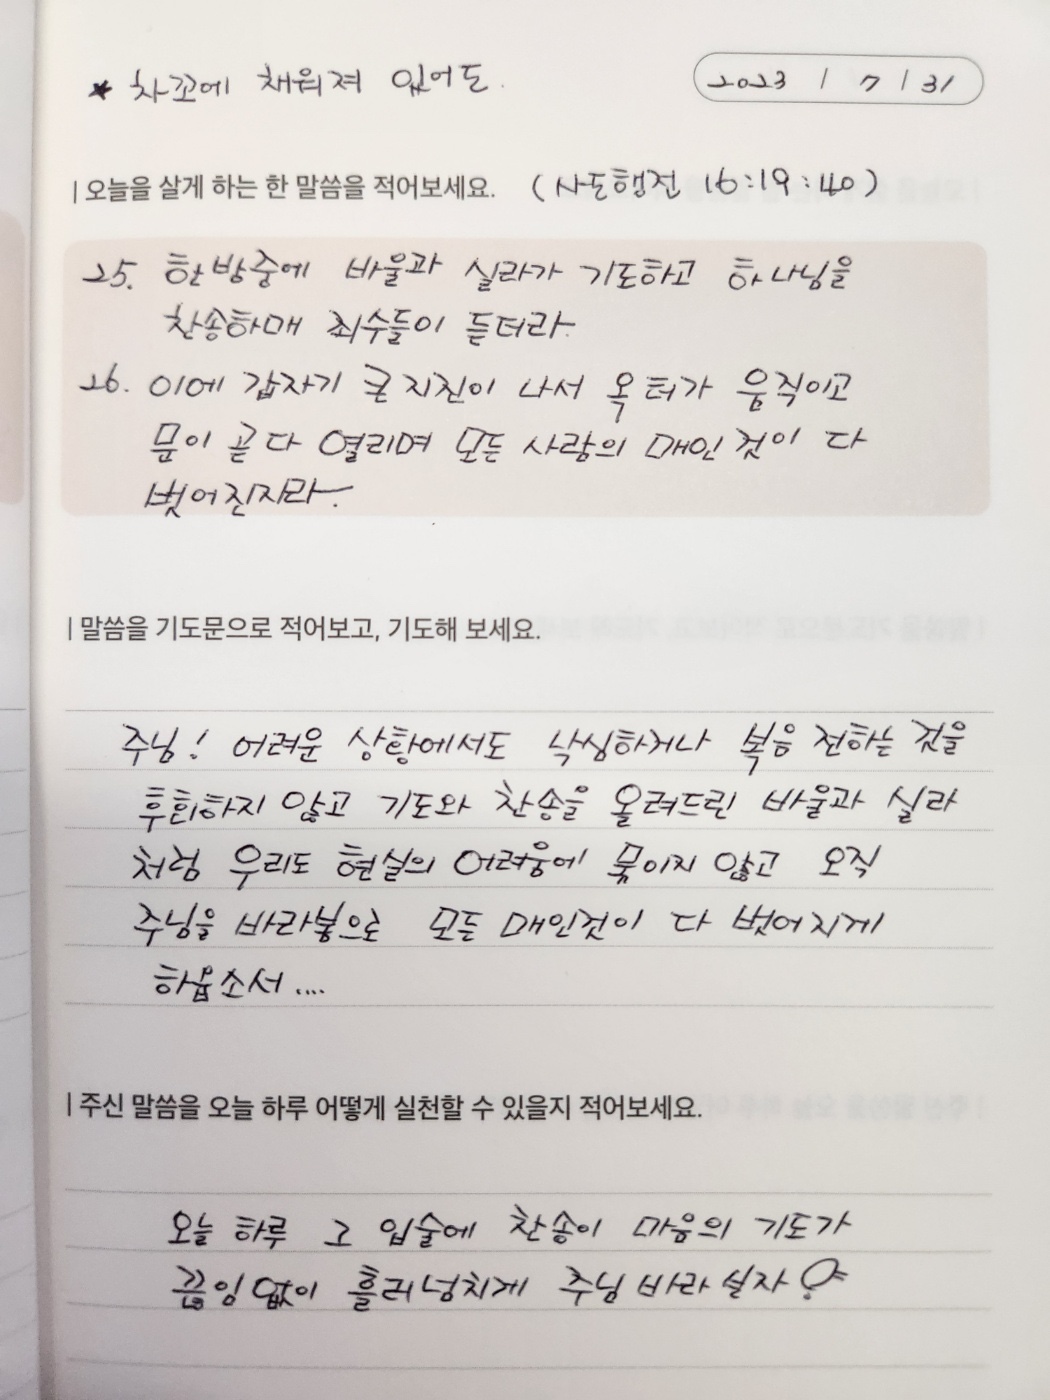 * 차꼬에 채워져 있어도.
2023 / 7 / 31
| 오늘을 살게 하는 한 말씀을 적어보세요. (사도행전 16:19:40)
25. 한밤중에 바울과 실라가 기도하고 하나님을
찬송하매 죄수들이 듣더라
26. 이에 갑자기 큰 지진이 나서 옥 터가 움직이고
문이 곧 다 열리며 모든 사람의 매인 것이 다
벗어진지라
| 말씀을 기도문으로 적어보고, 기도해 보세요.
주님! 어려운 상황에서도 낙심하거나 복음 전하는 것을
후회하지 않고 기도와 찬송을 올려드린 바울과 실라
처럼 우리도 현실의 어려움에 묶이지 않고 오직
주님을 바라봄으로 모든 매인것이 다 벗어지게
하옵소서....
| 주신 말씀을 오늘 하루 어떻게 실천할 수 있을지 적어보세요.
오늘 하루 그 입술에 찬송이 마음의 기도가
끊임없이 흘러넘치게 주님 바라